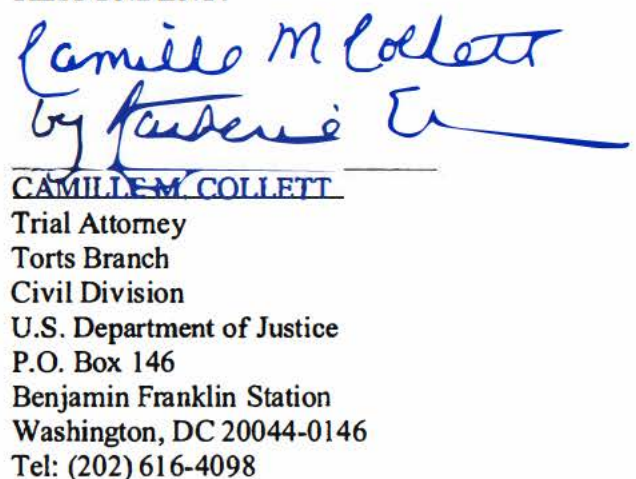 Camille M Collett
by
CAMILLE M. COLLETT
Trial Attorney
Torts Branch
Civil Division
U.S. Department of Justice
P.O. Box 146
Benjamin Franklin Station
Washington, DC 20044-0146
Tel: (202) 616-4098